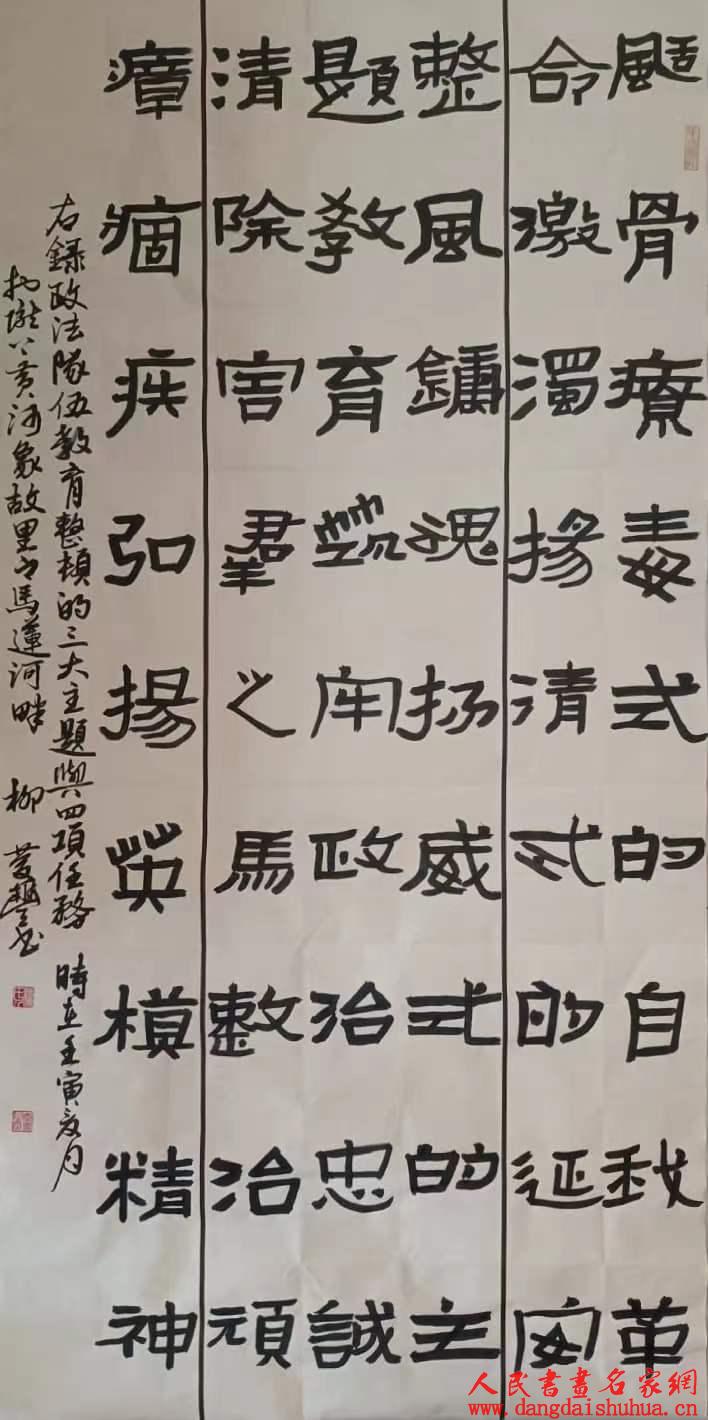 颳骨療毒式的自我革
命激濁揚清式的延安
整風鑄魂扬威式的主
題教育築牢政治忠誠
清除害羣之馬整治頑
瘴痼疾弘揚英模精神
右錄政法隊伍教育整頓的三大主題與四項任務 時在壬寅夏月
隴上黃河象故里之馬蓮河畔 柳 書
人民書畫名家網
www.dangdaishuhua.cn